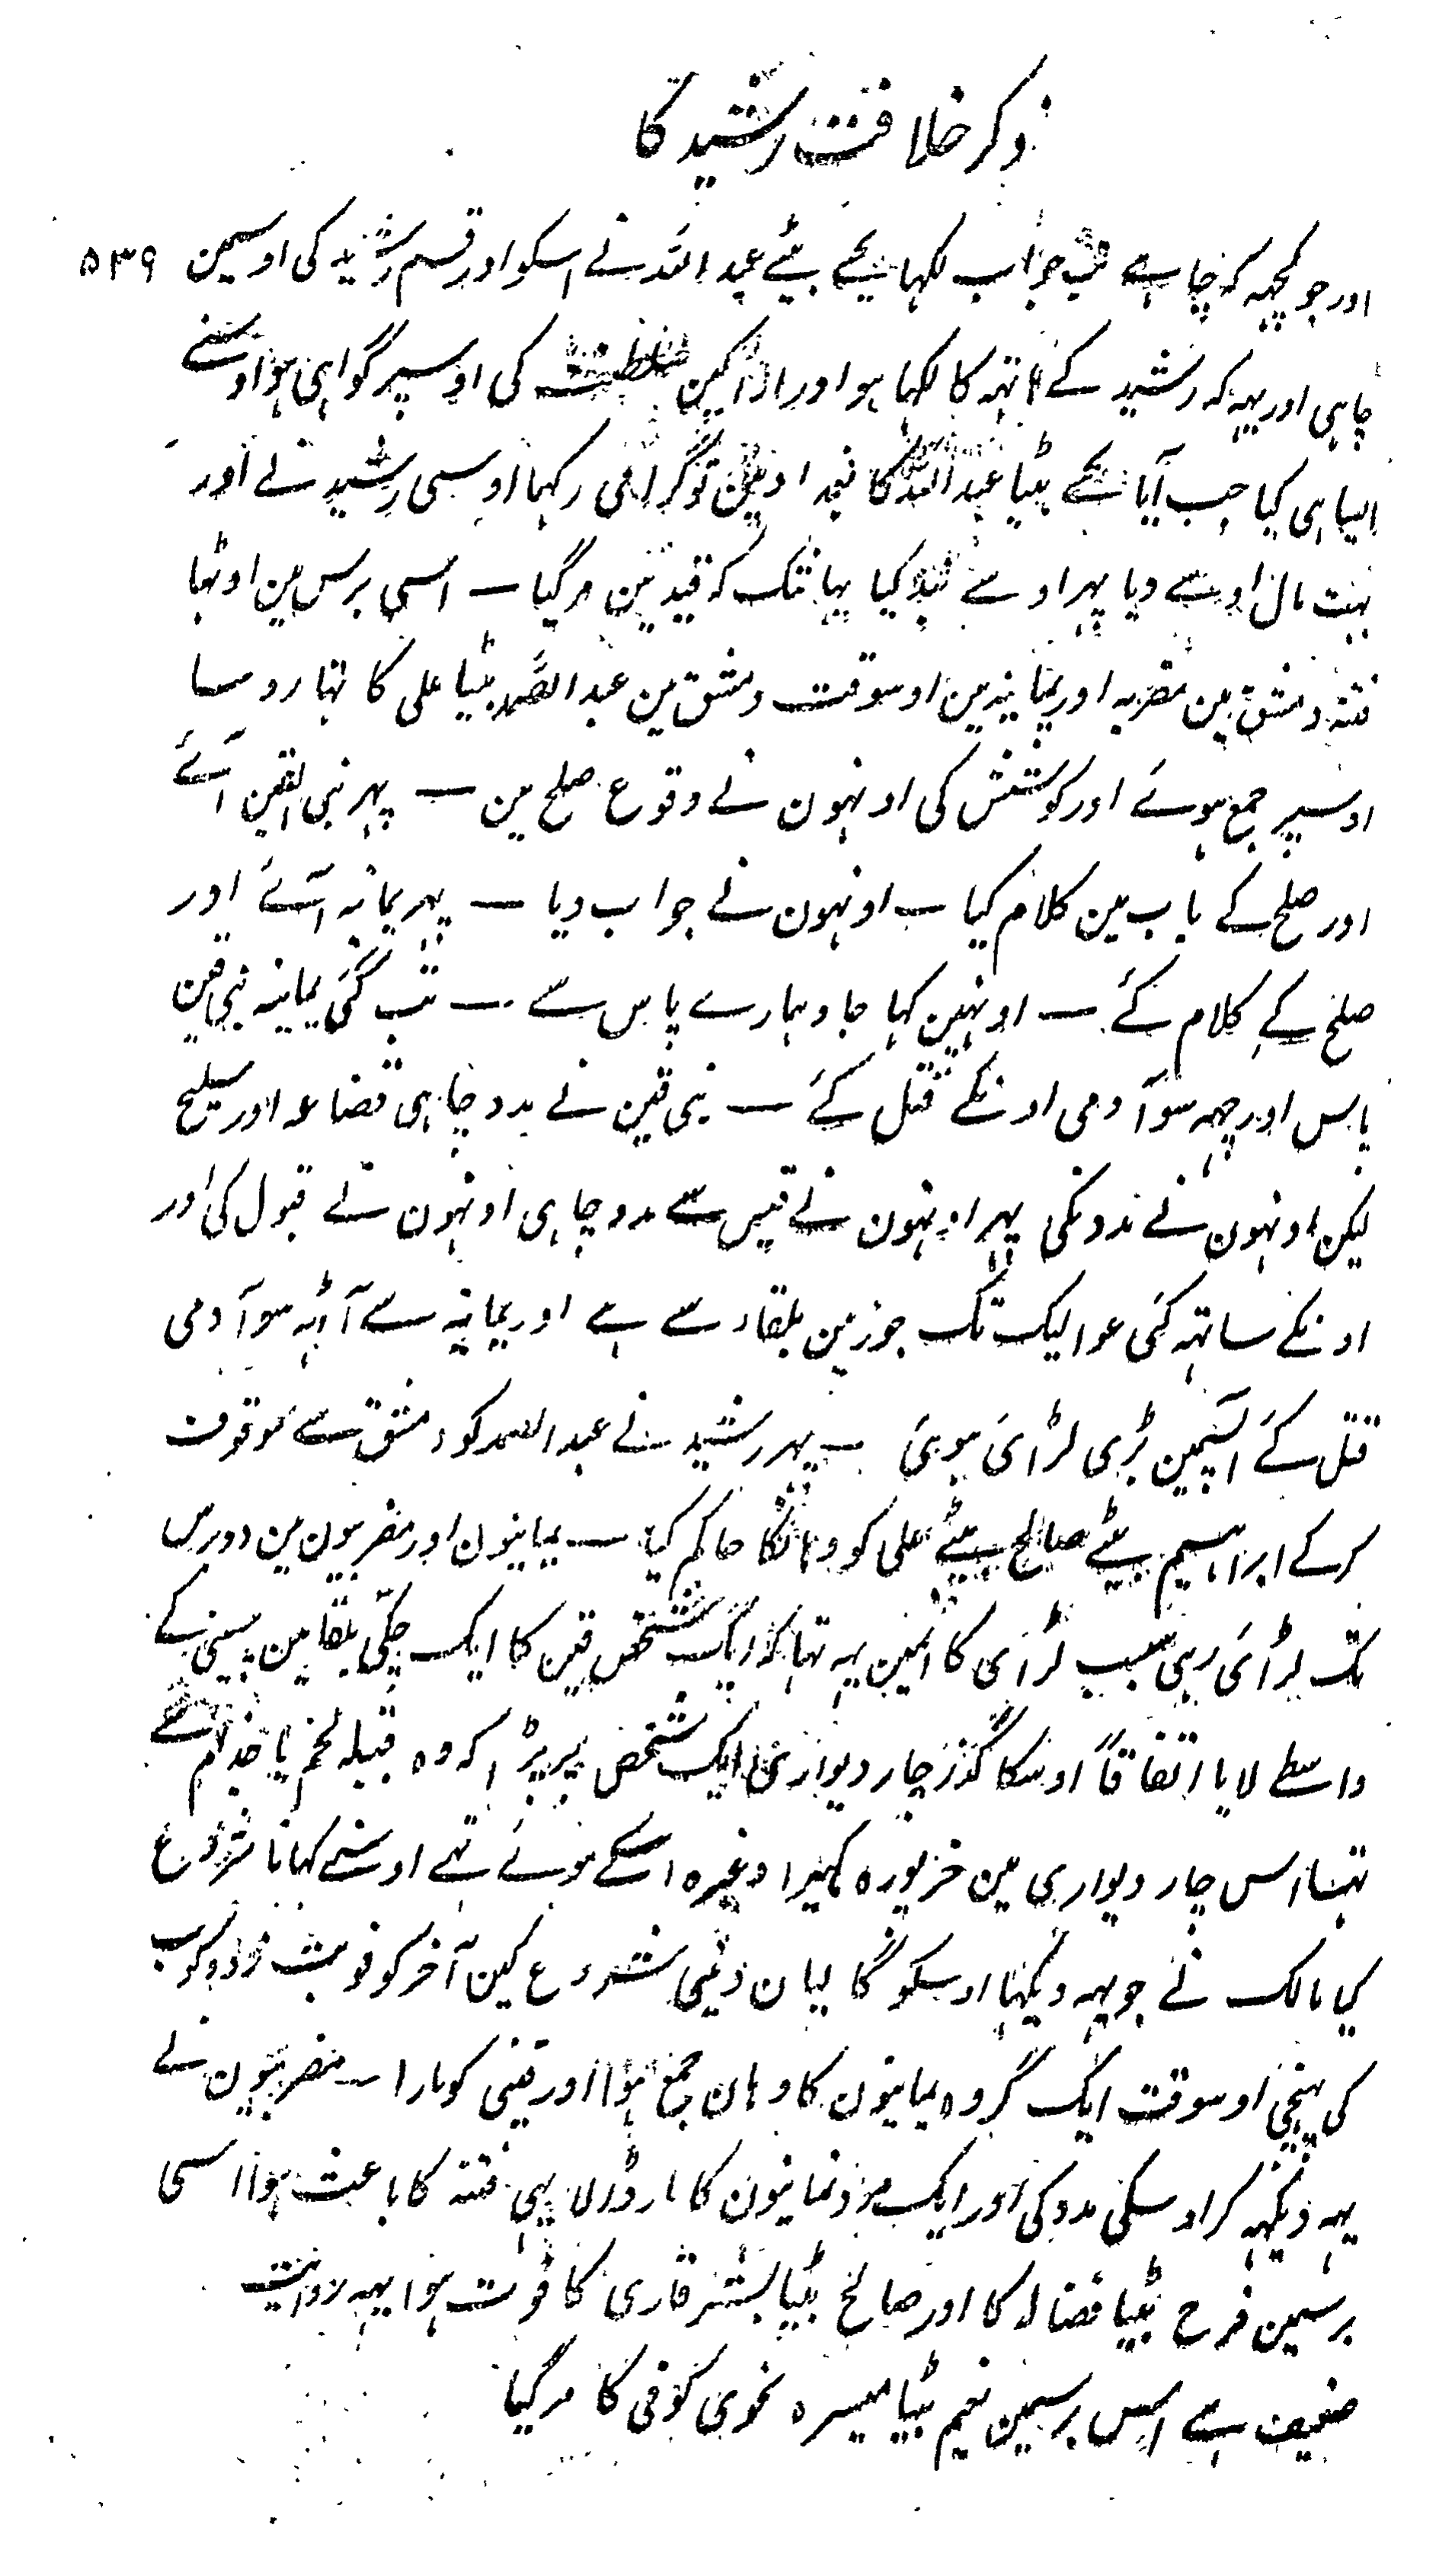 ذکر خلافت رشید کا
اور جو کچھہ کہ چاہے تب جواب لکہا یحے بیٹے عبد اللہ نے اسکو اور قسم رشید کی اوسمین ۵۳۹
چاہی اور یہہ کہ رشید کے ہاتہہ کا لکہا ہو اور اراکین سلطنت کی اوسپر گواہی ہو اوسنے
ایسا ہی کیا جب آیا یحے بیٹا عبد اللہ کا بغداد مین تو گرامی رکہا اوسی رشید نے اور
بہت مال اوسے دیا پہر اوسے قید کیا یہانتک کہ قید مین مر گیا ۔ اسی برس مین اوٹہا
فتنہ دمشق مین مضریہ اور یمانیہ مین اوسوقت دمشق مین عبد الصمد بیٹا علی کا تہا روسا
اوسپر جمع ہوئے اور کوشش کی اونہون نے وقوع صلح مین ۔ پہر بنی القین آئے
اور صلح کے باب مین کلام کیا ۔ اونہون نے جواب دیا ۔ پہر یمانیہ آئے اور
صلح کے کلام کئے ۔ اونہین کہا جاو ہمارے پاس سے ۔ تب گئی یمانیہ بنی قین
پاس اور چہہ سو آدمی اونکے قتل کئے ۔ بنی قین نے مدد چاہی قضاعہ اور سلیح
لیکن اونہون نے مدد نکی پہر اونہون نے قیس سے مدد چاہی اونہون نے قبول کی اور
اونکے ساتہہ گئی عوالیک تک جو زمین بلقاء سے ہے اور یمانیہ سے آٹہہ سو آدمی
قتل کئے آپسمین بڑی لڑائی ہوئی ۔ پہر رشید نے عبد الصمد کو دمشق سے موقوف
کرکے ابراہیم بیٹے صالح بیٹے علی کو وہانکا حاکم کیا ۔ یمانیون اور مضریون مین دو برس
تک لڑائی رہی سبب لڑائی کا انمین یہہ تہا کہ ایک شخص قین کا ایک چکی بلقا مین پیسنی کے
واسطے لایا اتفاقاً اوسکا گذر چار دیواری ایک شخص پر پڑا کہ وہ قبیلہ لخم یا جذام سے
تہا اس چار دیواری مین خربوزہ کہیرا وغیرہ اسکے بوئے تہے اوسنے کہانا شروع
کیا مالک نے جو یہہ دیکہا اوسکو گالیان دینی شروع کین آخر کو نوبت زدوکوب
کی پہنچی اوسوقت ایک گروہ یمانیون کا وہان جمع ہوا اور قینی کو مارا ۔ مضریون نے
یہہ دیکہہ کر اوسکی مدد کی اور ایک مرد یمانیون کا مار ڈالا یہی فتنہ کا باعث ہوا اسی
برسمین فرح بیٹیا فضالہ کا اور صالح بیٹیا بشر قاری کا فوت ہوا یہہ روایت
ضعیف ہے اس برسمین نعیم بیٹیا میسرہ نحوی کوفی کا مر گیا